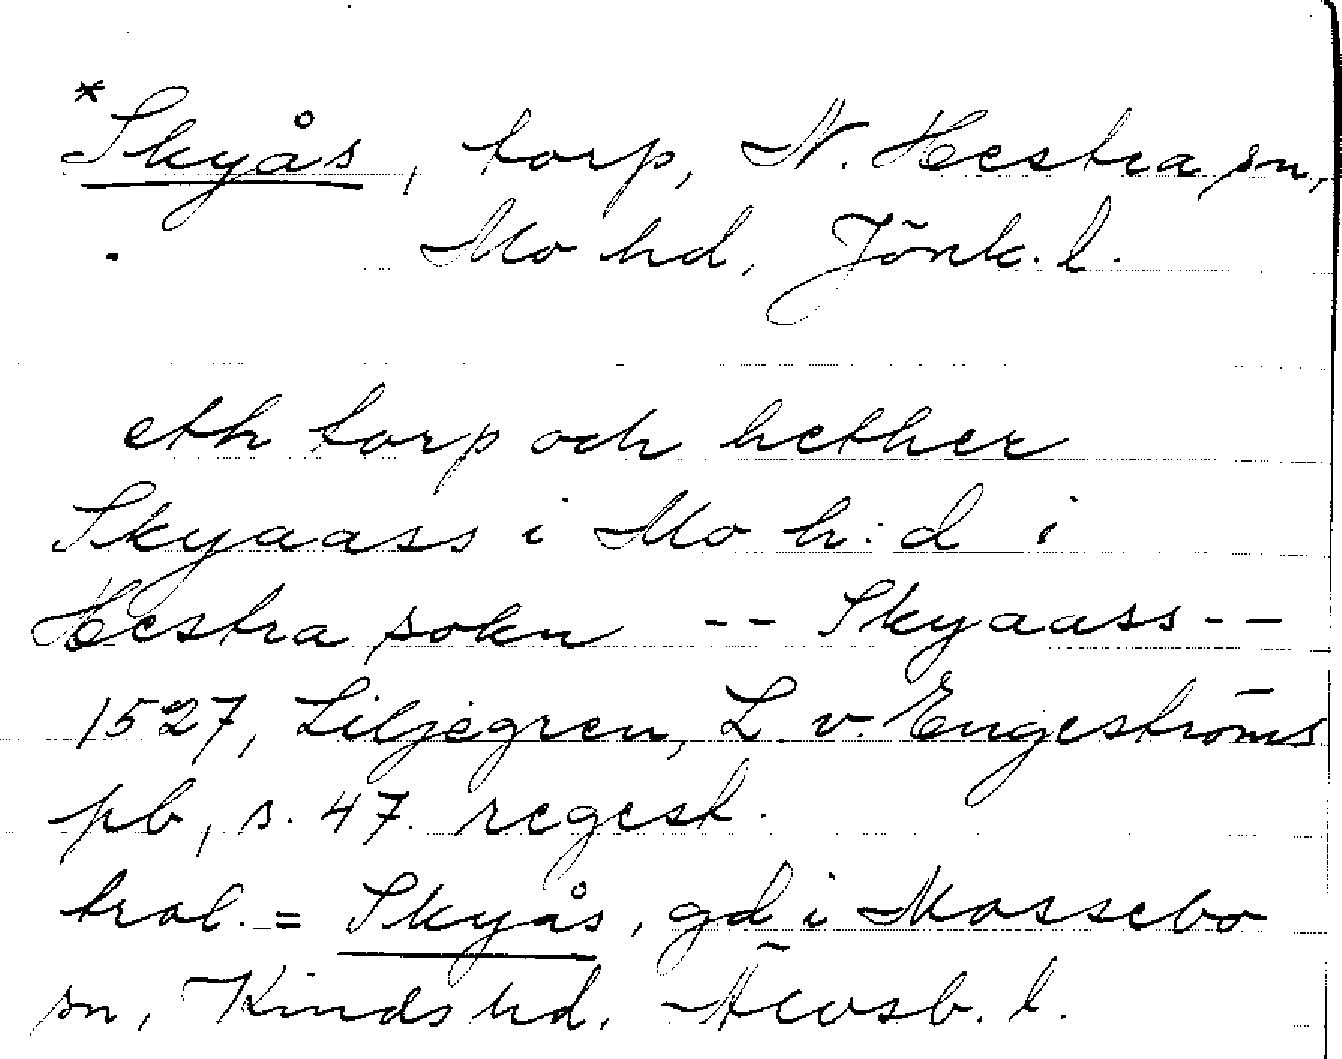 *Skyås, torp, N. Hestra sn,
Mo hd, Jönk. l.
eth torp och hether
Skyaass i Mo h:d i
Hestra sokn -- Skyaass --
1527, Liljegren, L. v. Engeströms
pb, s. 47. regest.
trol. = Skyås, gd i Mossebo
sn, Kinds hd, Älvsb. l.